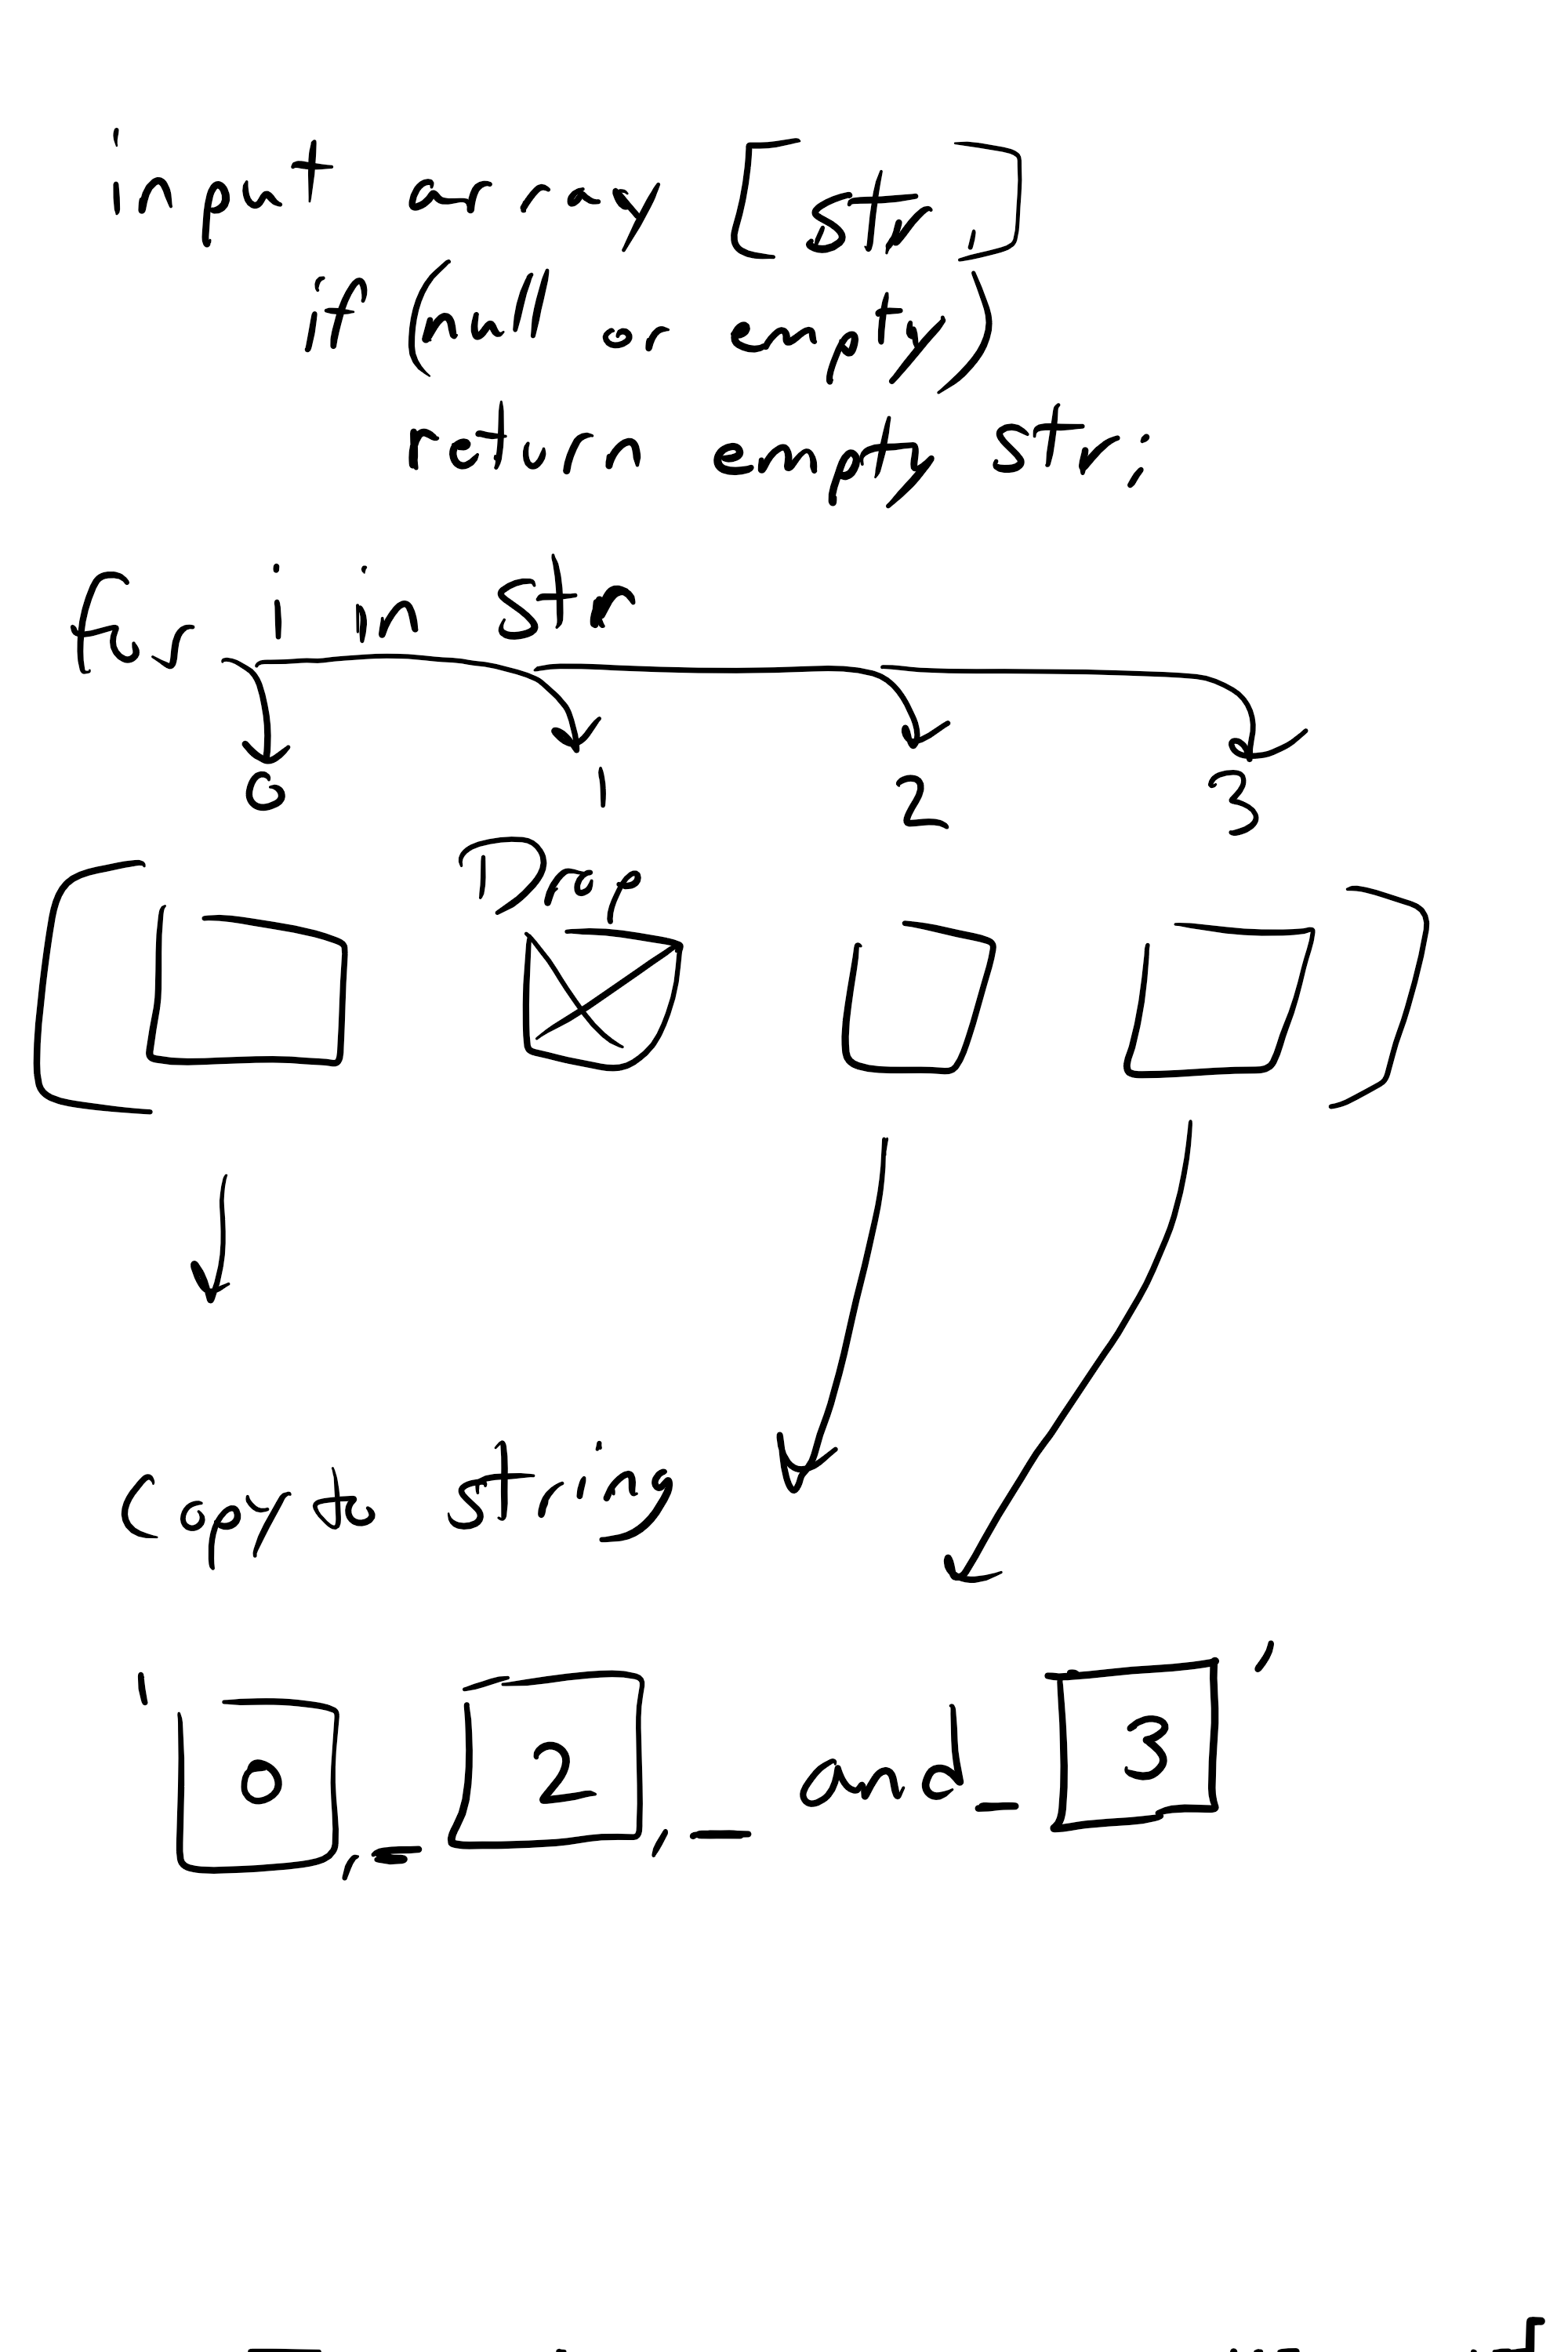 input array [str,]
if (null or empty)
return empty str;
for i in str
0 1 2 3
Drop
copy to string
' 0 ,_ 2 ,_ and_ 3 '